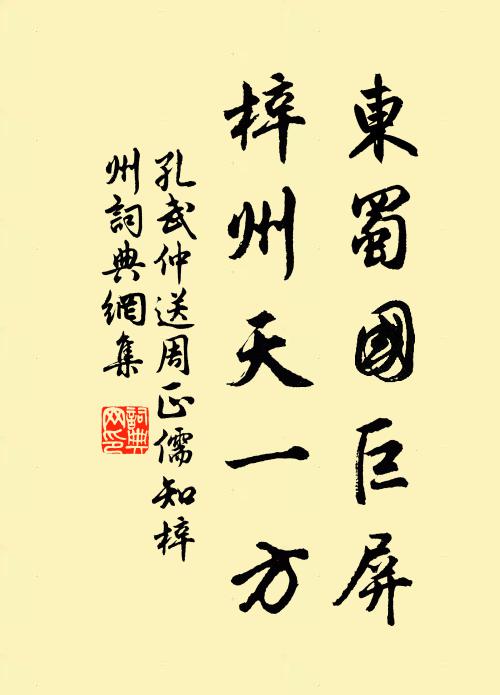 東蜀國巨屏
梓州天一方
孔武仲送周正儒知梓
州詞典網集
詞典網印